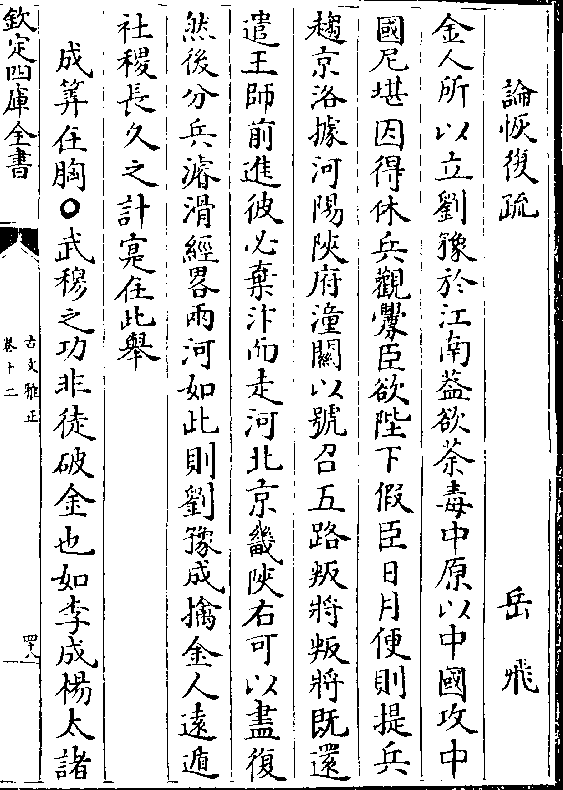 論恢復疏
岳飛
金人所以立劉豫於江南葢欲荼毒中原以中國攻中
國尼堪因得休兵觀釁臣欲陛下假臣日月便則提兵
趨京洛據河陽陜府潼關以號召五路叛將叛將既還
遣王師前進彼必棄汴而走河北京畿陜右可以盡復
然後分兵濬滑經畧兩河如此則劉豫成擒金人逺遁
社稷長久之計寔在此舉
成筭在胸○武穆之功非徒破金也如李成楊太諸
欽定四庫全書
古文雅正
卷十二
四十八